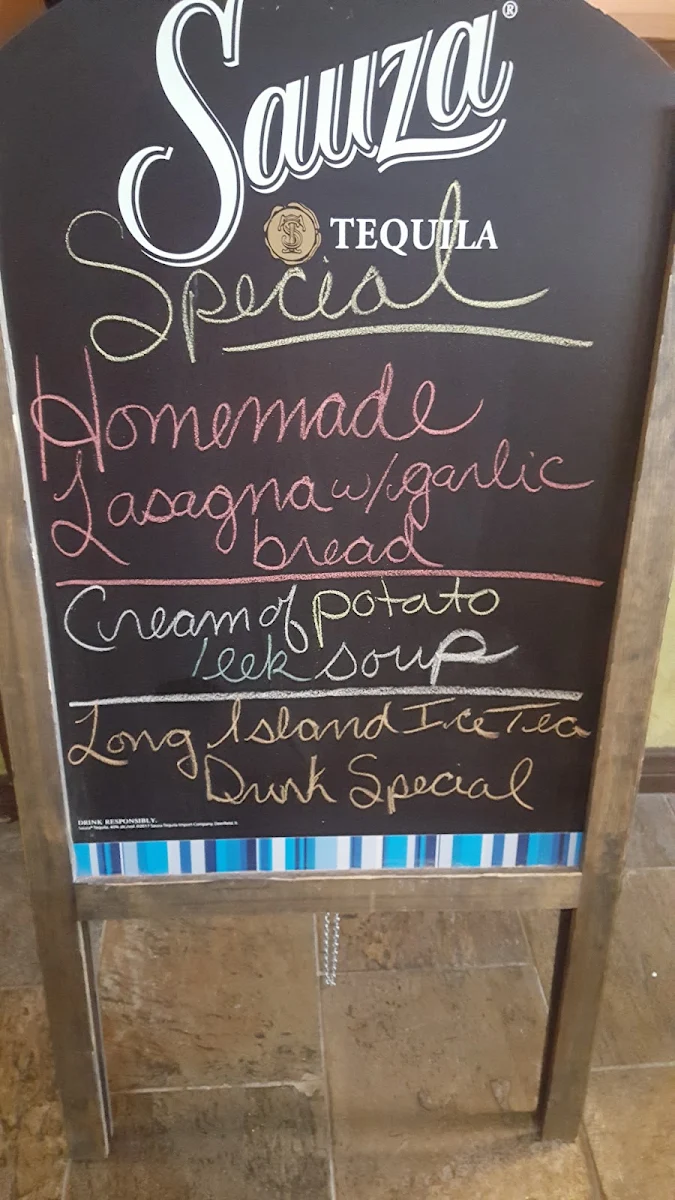 Sauza®
TEQUILA
Special
Homemade
Lasagna w/garlic
bread
Cream of potato
leek soup
Long Island Ice Tea
Drink Special
DRINK RESPONSIBLY.